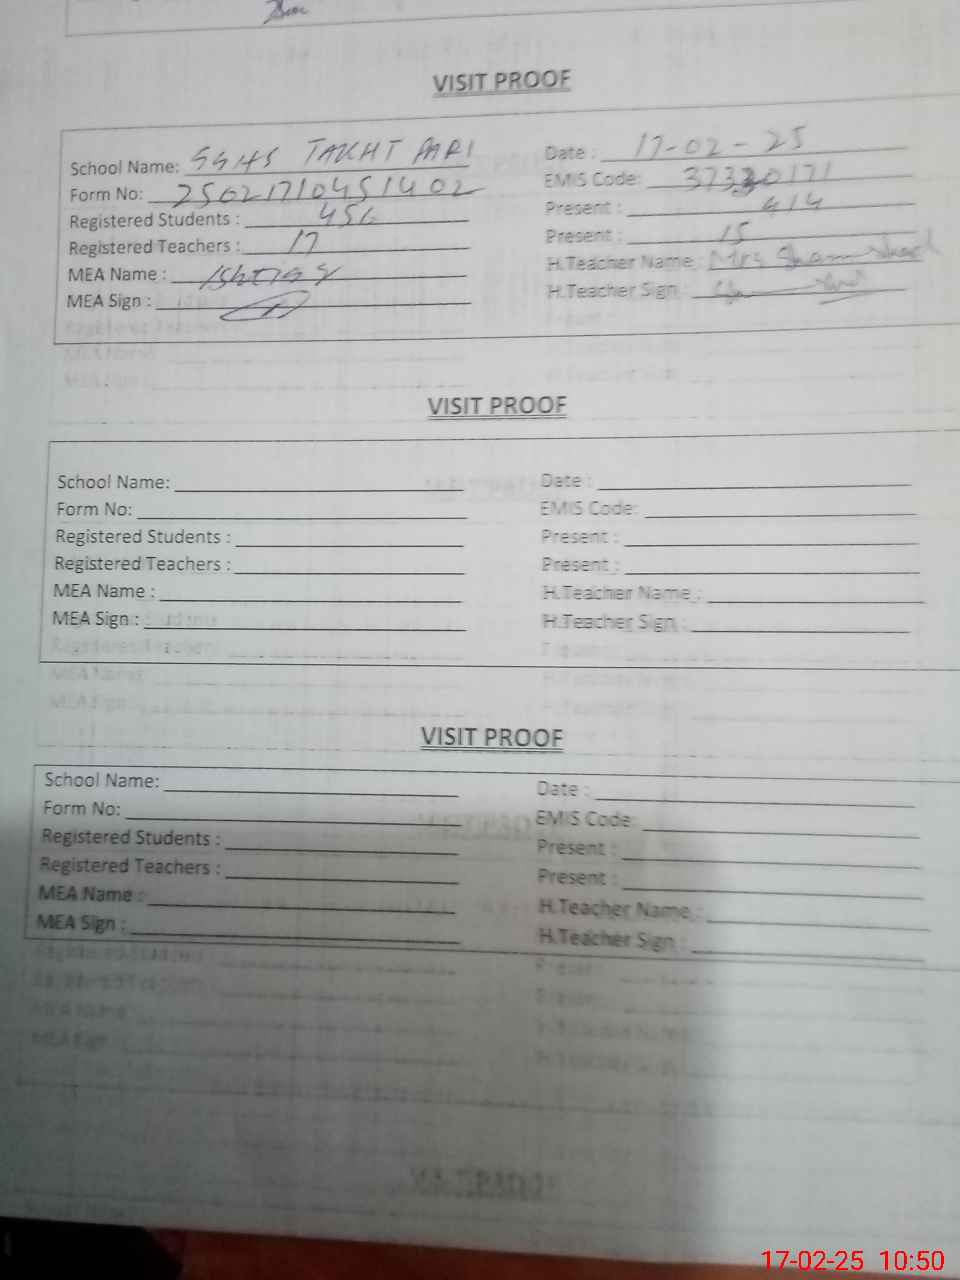 VISIT PROOF
School Name: GGHS TAKHT PARI Date : 17-02-25
Form No: 250217104514 02 EMIS Code: 37330171
Registered Students : 456 Present : 414
Registered Teachers : 17 Present : 15
MEA Name : Ishtiaq H.Teacher Name : Mrs
MEA Sign : H.Teacher Sign :
VISIT PROOF
School Name: Date :
Form No: EMIS Code:
Registered Students : Present :
Registered Teachers : Present :
MEA Name : H.Teacher Name :
MEA Sign : H.Teacher Sign :
VISIT PROOF
School Name: Date :
Form No: EMIS Code:
Registered Students : Present :
Registered Teachers : Present :
MEA Name : H.Teacher Name :
MEA Sign : H.Teacher Sign :
17-02-25 10:50